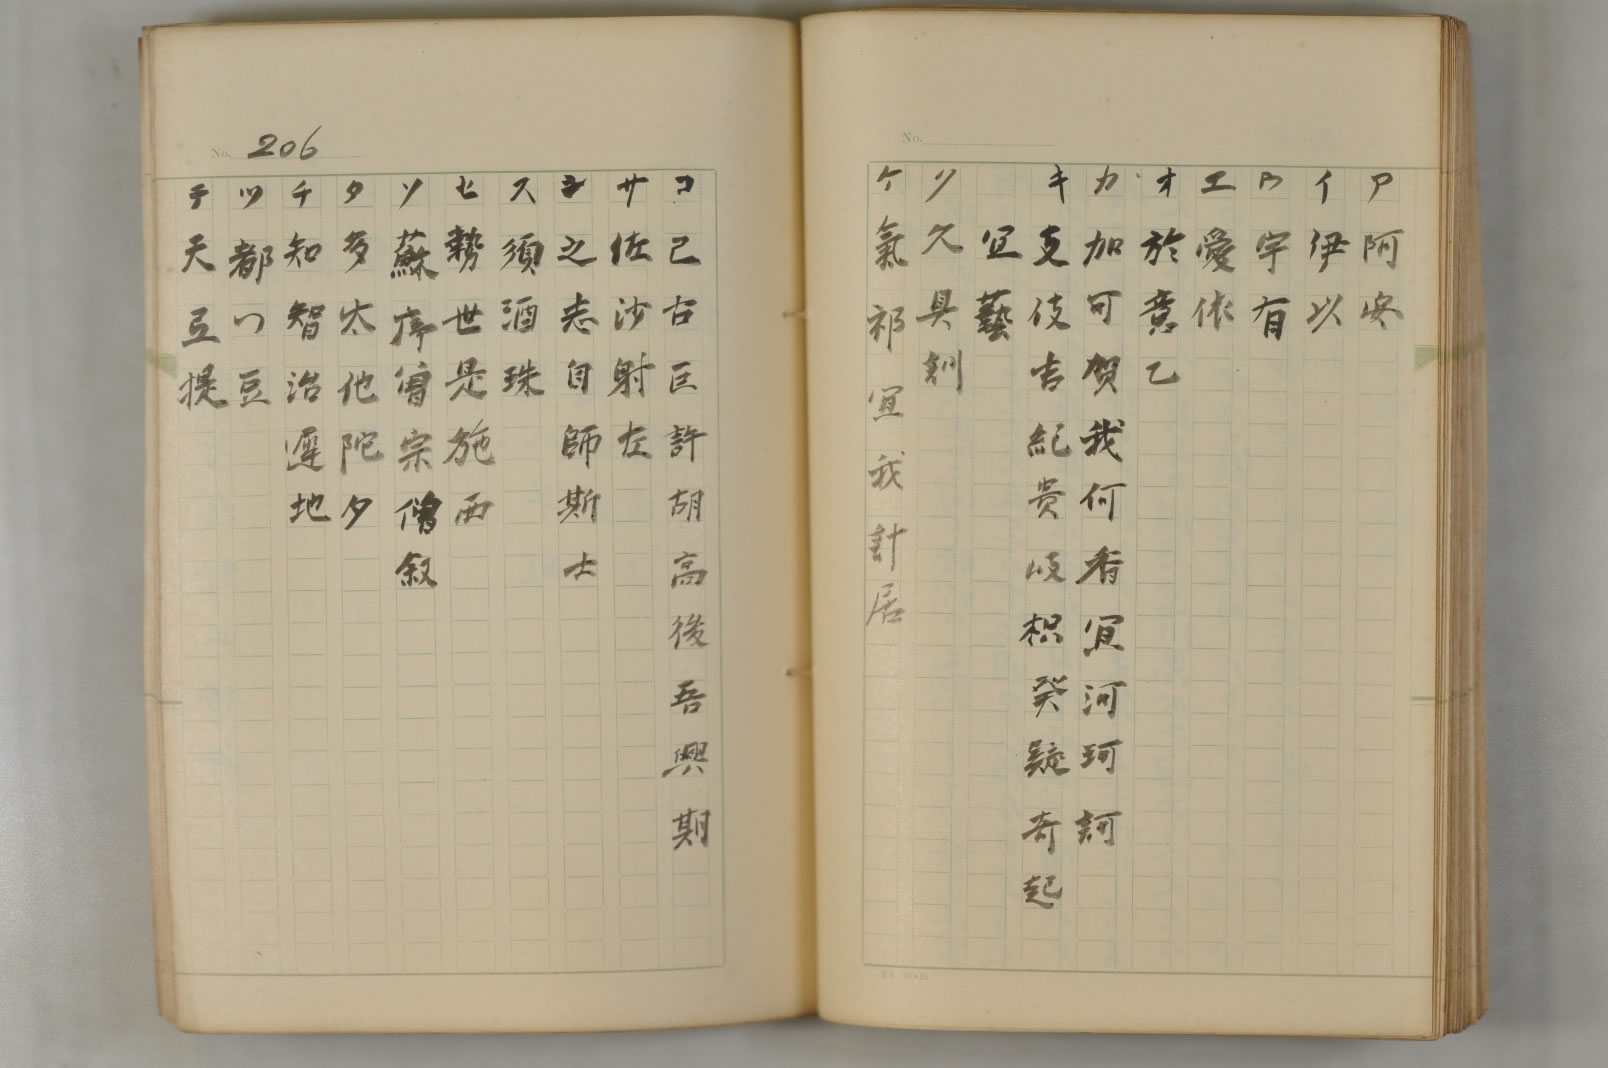 ア 阿 安
イ 伊 以
ウ 宇 有
エ 愛 依
オ 於 意 乙
カ 加 可 賀 我 何 香 宜 河 珂 訶
キ 支 伎 吉 紀 貴 岐 枳 癸 疑 奇 起
宜 藝
久 具
ケ 氣 祁 宜 我 計 居
No.
No. 206
コ 己 古 巨 許 胡 高 後 吾 興 期
サ 佐 沙 射 左
シ 之 志 自 師 斯 士
ス 須 酒 珠
セ 勢 世 是 施 西
ソ 蘇 序 曾 宗 僧 叙
タ 多 太 他 陀 夕
チ 知 智 治 遲 地
ツ 都 つ 豆
テ 天 互 提